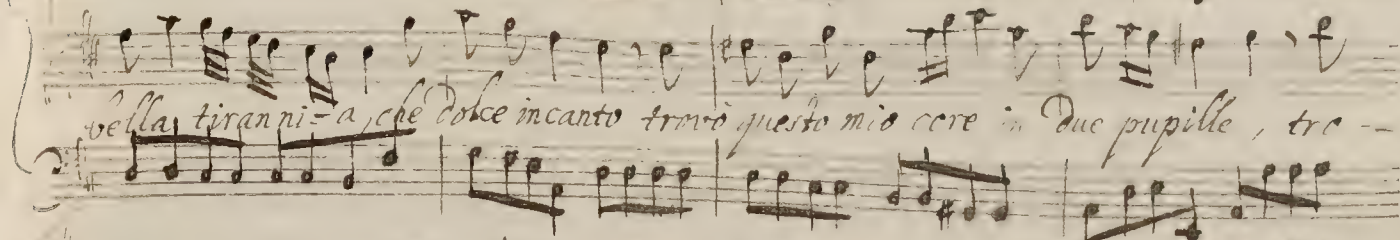 bella tiranni-a, che dolce incanto trovò questo mio core in due pupille, tro--